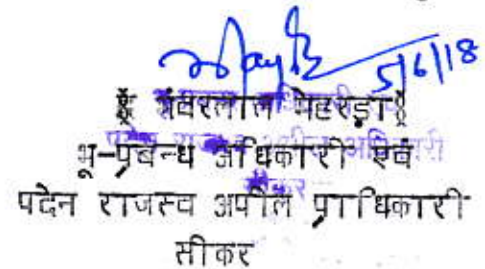 5/6/18
॥ भंवरलाल मेहरड़ा ॥
भू-प्रबन्ध अधिकारी एवं
पदेन राजस्व अपील प्राधिकारी
सीकर